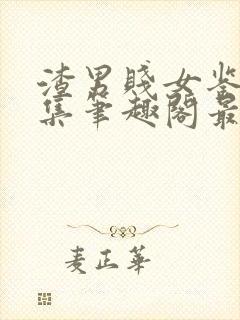 渣男贱女鉴
集笔趣阁最
麦正华